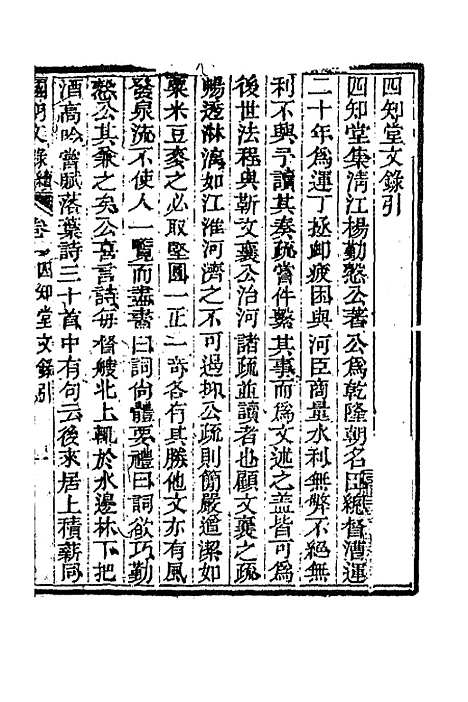 四知堂文錄引
四知堂集清江楊勤慤公著公爲乾隆朝名臣總督漕運
二十年爲運丁拯卹疲困與河臣商量水利無弊不絕無
利不興予讀其奏疏嘗件繫其事而爲文述之蓋皆可爲
後世法程與靳文襄公治河諸疏並讀者也顧文襄之疏
暢透淋漓如江淮河濟之不可遏抑公疏則簡嚴遒潔如
粟米豆麥之必取堅圓一正一奇各有其勝他文亦有風
發泉流不使人一覽而盡書曰詞尚體要禮曰詞欲巧勤
慤公其兼之矣公喜言詩每督艘北上輒於水邊林下把
酒高吟嘗賦落葉詩三十首中有句云後來居上積薪同
國朝文錄續 卷一 四知堂文錄引